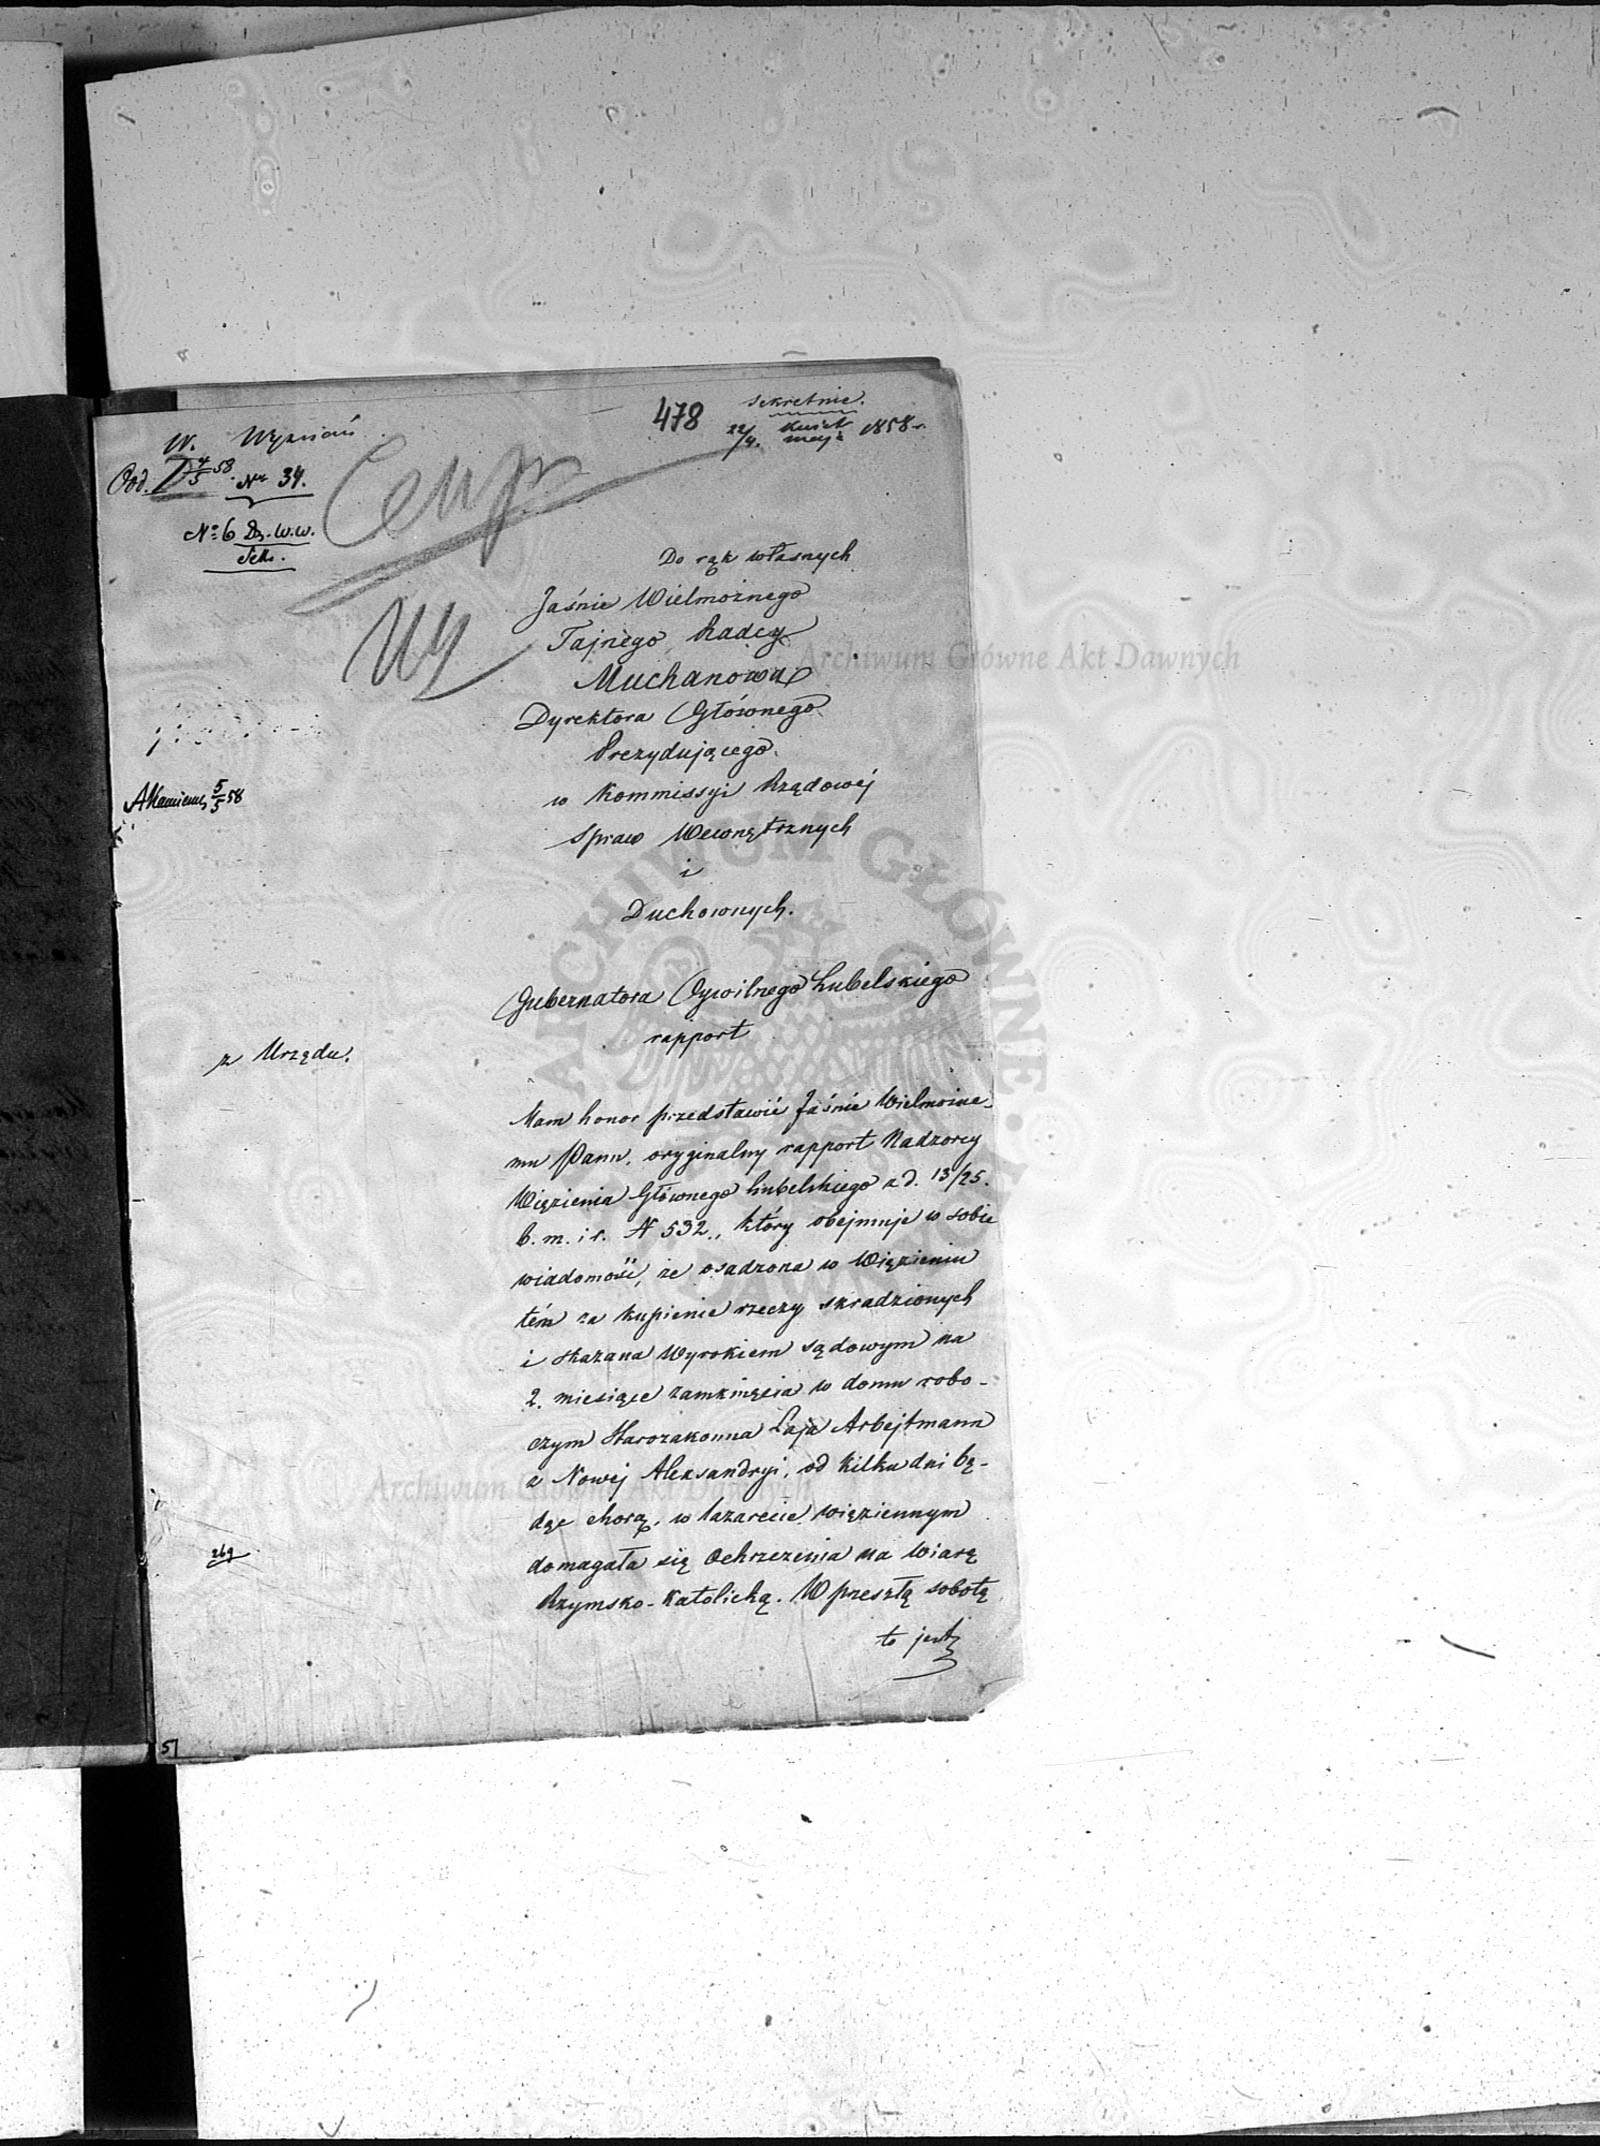 478
sekretnie.
22/4. Kwiet. maja 1858 r.
W. Wyznań
Odd. D 4/5 58. Nr 34.
No: 6 Dz. W. W.
Sekr.
Do rąk własnych
Jaśnie Wielmożnego
Tajnego Radcy
Muchanowa
Dyrektora Głównego
Prezydującego
w Kommissyi Rządowéj
Spraw Wewnętrznych
i
Duchownych.
5/5 58
Gubernatora Cywilnego Lubelskiego
rapport
z Urzędu.
Mam honor przedstawić Jaśnie Wielmożne-
mu Panu, oryginalny rapport Nadzorcy
Więzienia Głównego Lubelskiego z d. 13/25.
b. m. i r. N 532., który obejmuje w sobie
wiadomość, że osadzona w Więzieniu
tém za kupienie rzeczy skradzionych
i skazana Wyrokiem sądowym na
2. miesiące zamknięcia w domu robo-
czym Starozakonna Łaja Arbejtmann
z Nowej Aleksandryi, od kilku dni bę-
dąc chorą, w lazarecie więziennym
domagała się Ochrzczenia na wiarę
Rzymsko-Katolicką. W przeszłą sobotę
to jest
269
51
Archiwum Główne Akt Dawnych
Archiwum Główne Akt Dawnych
ARCHIWUM GŁÓWNE